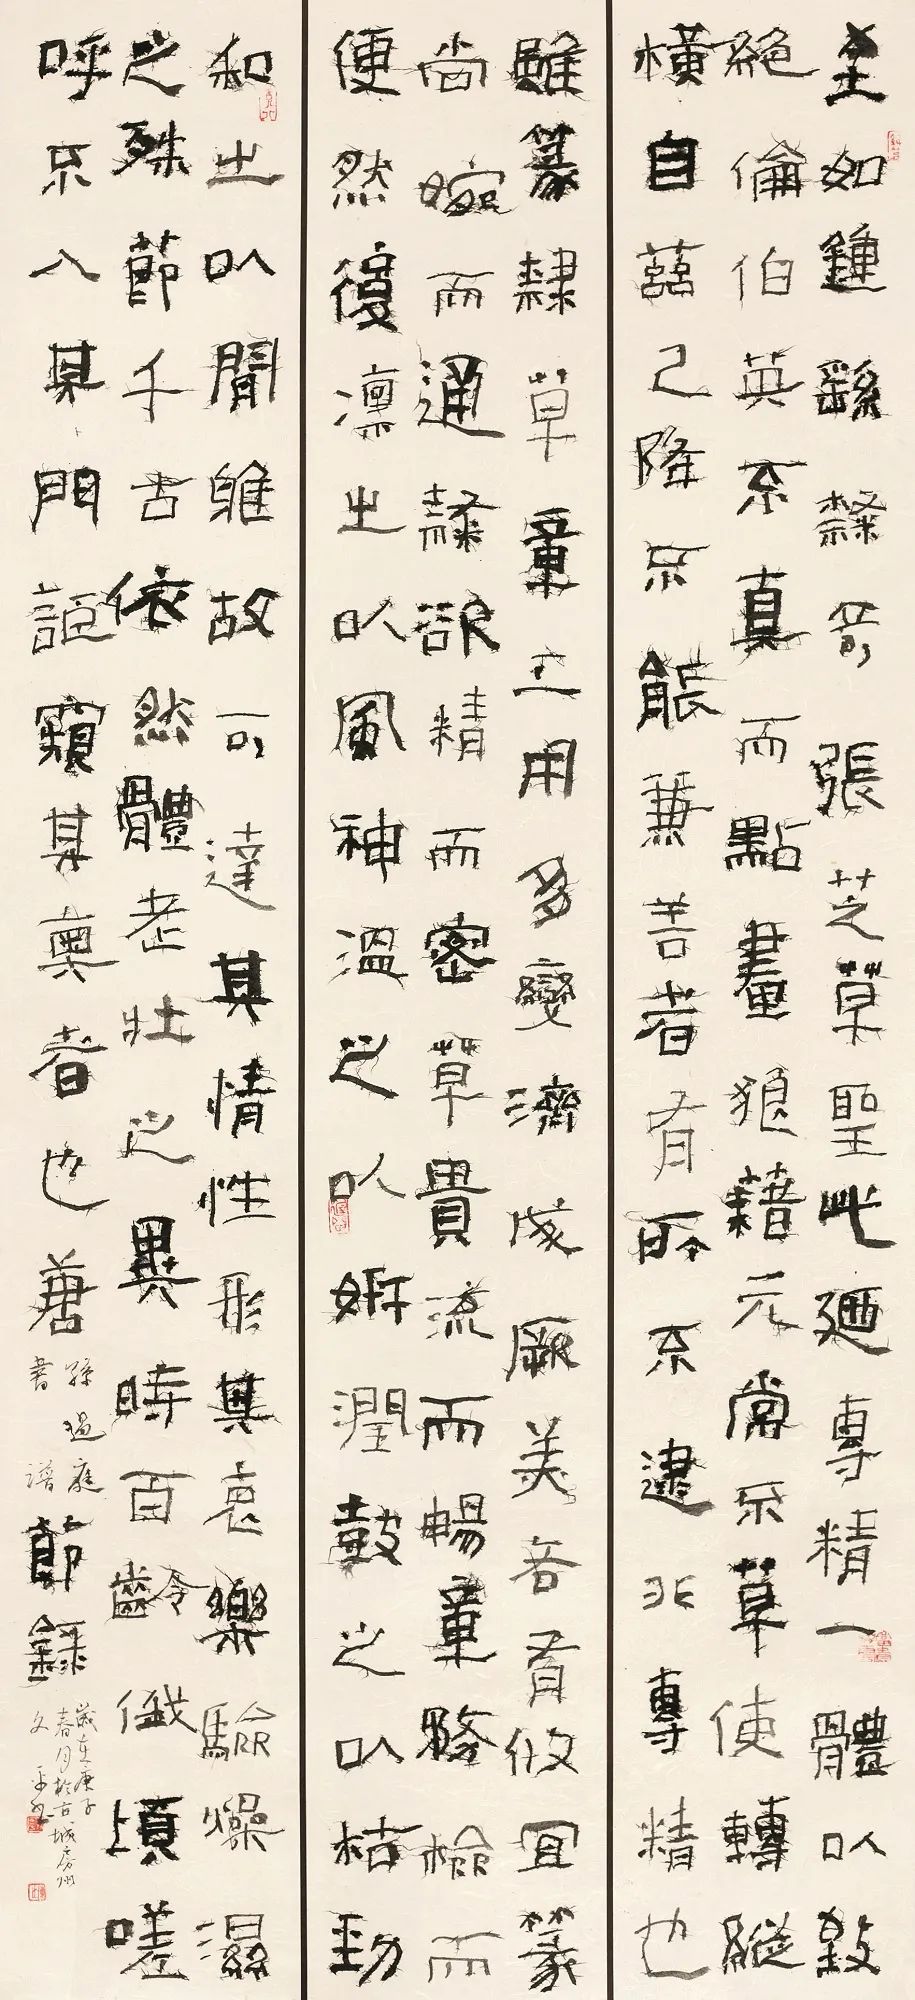 至如鍾繇隸奇張芝草聖此廼專精一體以致
絕倫伯英不真而點畫狼藉元常不草使轉縱
橫自茲已降不能兼善者有所不逮非專精也
雖篆隸草章工用多變濟成厥美各有攸宜篆
尚婉而通隸欲精而密草貴流而暢章務檢而
便然後凜之以風神溫之以妍潤鼓之以枯勁
和之以閒雅故可達其情性形其哀樂驗燥濕
之殊節千古依然體老壯之異時百齡俄頃嗟
呼不入其門詎窺其奧者也唐孫過庭書譜節錄
歲在庚子
春月於古城房州
文平書